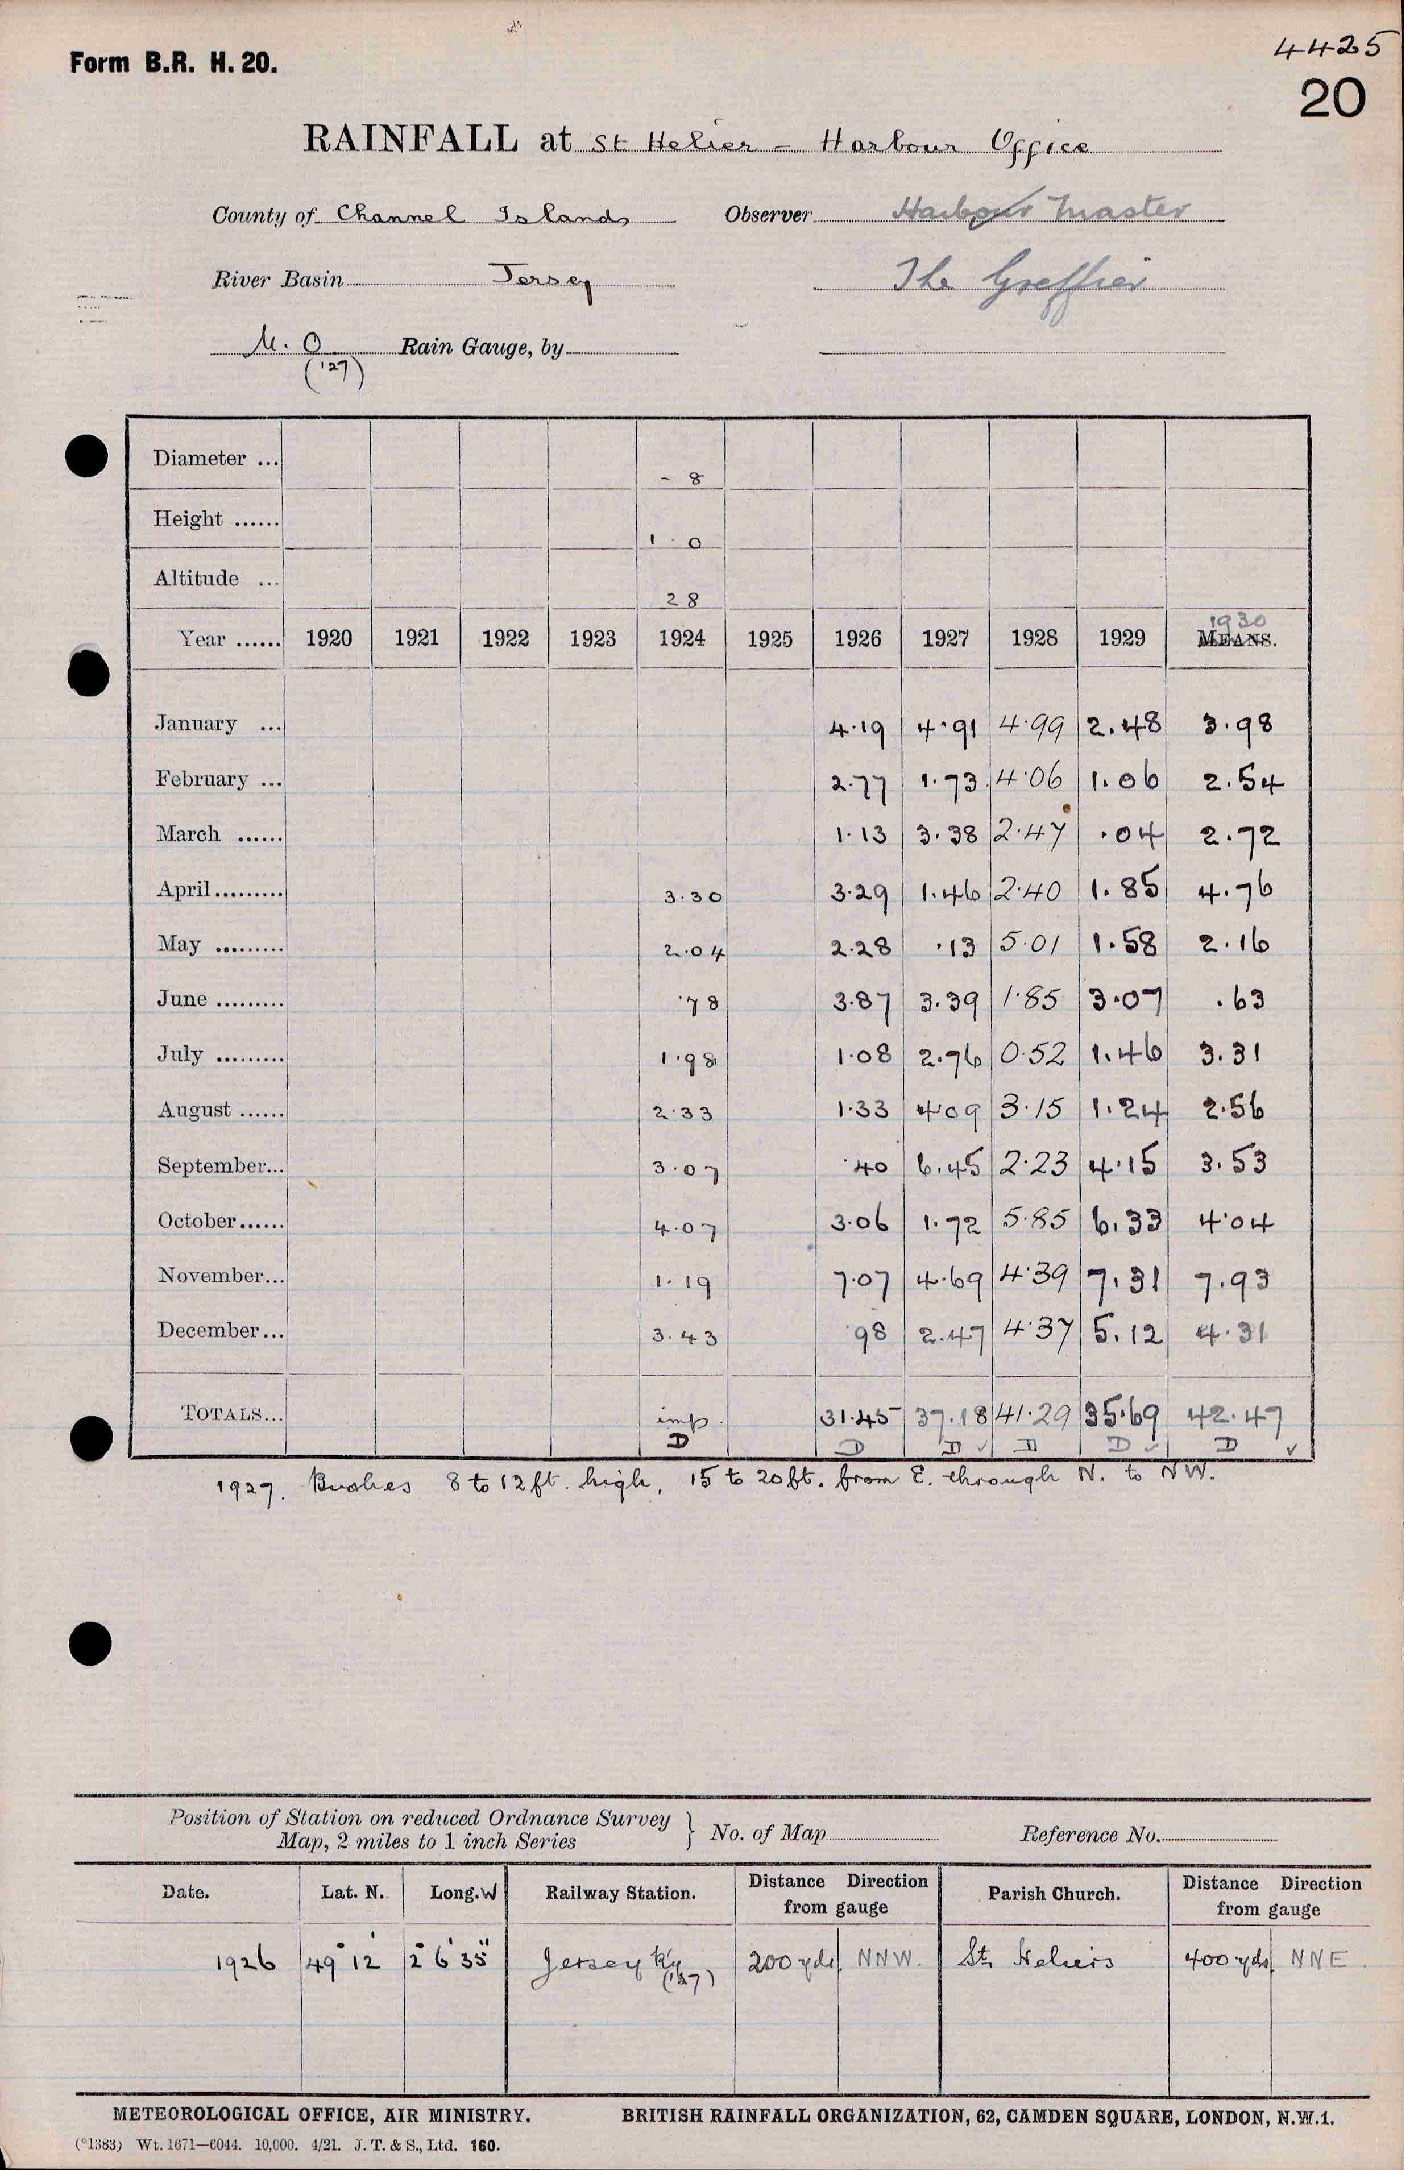 4425
Form B.R. H. 20.
20
RAINFALL at St Helier - Harbour Office
County of Channel Islands Observer Harbour Master
River Basin Jersey The Greffier
M. O Rain Gauge, by
('27)
Diameter ... - 8
Height ...... 1 . 0
Altitude ... 28
1930
Year ...... 1920 1921 1922 1923 1924 1925 1926 1927 1928 1929 MEANS.
January ... 4.19 4.91 4.99 2.48 3.98
February ... 2.77 1.73 4.06 1.06 2.54
March ...... 1.13 3.38 2.47 .04 2.72
April......... 3.30 3.29 1.46 2.40 1.85 4.76
May ......... 2.04 2.28 .13 5.01 1.58 2.16
June ......... .78 3.87 3.39 1.85 3.07 .63
July ......... 1.98 1.08 2.76 0.52 1.46 3.31
August ...... 2.33 1.33 4.09 3.15 1.24 2.56
September... 3.07 .40 6.45 2.23 4.15 3.53
October...... 4.07 3.06 1.72 5.85 6.33 4.04
November... 1.19 7.07 4.69 4.39 7.31 7.93
December... 3.43 .98 2.47 4.37 5.12 4.31
TOTALS... imp. 31.45 37.18 41.29 35.69 42.47
D D D ✓ D D ✓ D ✓
1927. Bushes 8 to 12 ft. high, 15 to 20 ft. from E. through N. to NW.
Position of Station on reduced Ordnance Survey
Map, 2 miles to 1 inch Series } No. of Map Reference No.
Date. Lat. N. Long. W Railway Station. Distance Direction from gauge Parish Church. Distance Direction from gauge
1926 49° 12' 2° 6' 35" Jersey Rly ('27) 200 yds NNW. St. Heliers 400 yds NNE.
METEOROLOGICAL OFFICE, AIR MINISTRY. BRITISH RAINFALL ORGANIZATION, 62, CAMDEN SQUARE, LONDON, N.W.1.
(*1383) Wt. 1671—6044. 10,000. 4/21. J. T. & S., Ltd. 160.